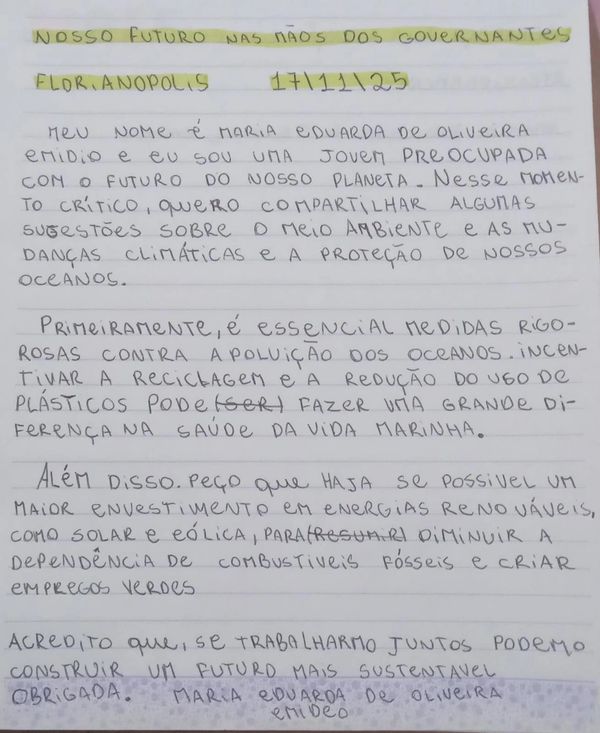 NOSSO FUTURO NAS MÃOS DOS GOVERNANTES
FLORIANOPOLIS 17\11\25
MEU NOME É MARIA EDUARDA DE OLIVEIRA
EMIDIO E EU SOU UMA JOVEM PREOCUPADA
COM O FUTURO DO NOSSO PLANETA. NESSE MOMEN-
TO CRÍTICO, QUERO COMPARTILHAR ALGUMAS
SUGESTÕES SOBRE O MEIO AMBIENTE E AS MU-
DANÇAS CLIMÁTICAS E A PROTEÇÃO DE NOSSOS
OCEANOS.
PRIMEIRAMENTE, É ESSENCIAL MEDIDAS RIGO-
ROSAS CONTRA A POLUIÇÃO DOS OCEANOS. INCEN-
TIVAR A RECICLAGEM E A REDUÇÃO DO USO DE
PLÁSTICOS PODE (SER) FAZER UMA GRANDE DI-
FERENÇA NA SAÚDE DA VIDA MARINHA.
ALÉM DISSO. PEÇO QUE HAJA SE POSSIVEL UM
MAIOR ENVESTIMENTO EM ENERGIAS RENOVÁVEIS,
COMO SOLAR E EÓLICA, PARA (RESUMIR) DIMINUIR A
DEPENDÊNCIA DE COMBUSTIVEIS FÓSSEIS E CRIAR
EMPREGOS VERDES
ACREDITO QUE, SE TRABALHARMO JUNTOS PODEMO
CONSTRUIR UM FUTURO MAIS SUSTENTAVEL
OBRIGADA. MARIA EDUARDA DE OLIVEIRA
EMIDEO